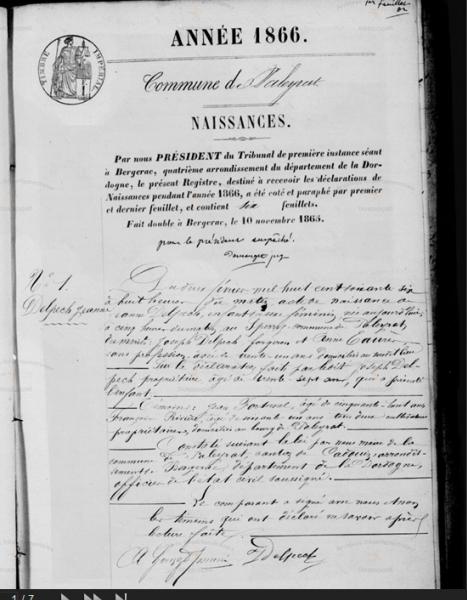 1er feuillet
TIMBRE IMPÉRIAL
ANNÉE 1866.
Commune d Paleyrac
NAISSANCES.
Par nous PRÉSIDENT du Tribunal de première instance séant
à Bergerac, quatrième arrondissement du département de la Dor-
dogne, le présent Registre, destiné à recevoir les déclarations de
Naissances pendant l'année 1866, a été coté et paraphé par premier
et dernier feuillet, et contient six feuillets.
Fait double à Bergerac, le 10 novembre 1865.
pour le président empêché.
No 1.
Delpech Jeanne
Du deux février mil huit cent soixante six
à huit heures du matin acte de naissance de
Jeanne Delpech, enfant du sexe féminin née aujourd'hui
à cinq heures du matin au commune de Paleyrac,
Joseph Delpech forgeron et Anne
sans profession, âgée de trente un ans domiciliés au même lieu
Sur la déclaration faite par ledit Joseph Del-
pech propriétaire âgé de trente-sept ans, qui a présenté
l'enfant.
Témoins: Jean âgé de cinquante-huit ans
François Rivière âgé de soixante un ans tous deux
propriétaires, domiciliés au bourg de Paleyrac.
Constaté suivant la loi par nous maire de la
commune de Paleyrac, canton de Cadouin, arrondis-
sement de Bergerac, département de la Dordogne,
officier de l'état civil soussigné.
Le comparant a signé avec nous et non
les témoins qui ont déclaré ne savoir après
lecture faite.
Delpech
1/7